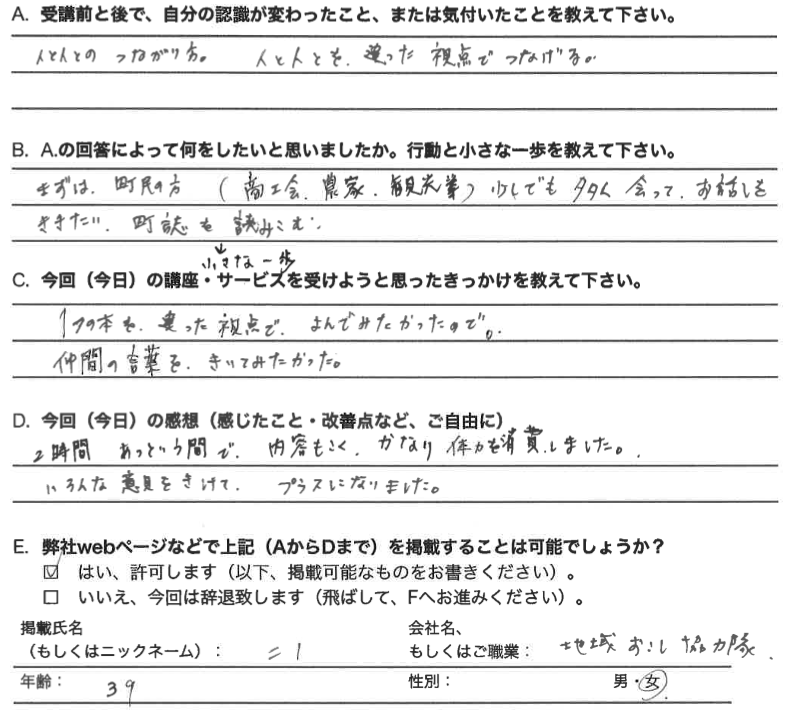 A. 受講前と後で、自分の認識が変わったこと、または気付いたことを教えて下さい。
人と人とのつながり方。 人と人とを、違った視点でつなげる。
B. A.の回答によって何をしたいと思いましたか。行動と小さな一歩を教えて下さい。
まずは、町民の方(商工会、農家、観光業)少しでも多く 会って、お話しを
ききたい、町誌を読みこむ。
↓
小さな一歩
C. 今回(今日)の講座・サービスを受けようと思ったきっかけを教えて下さい。
1つの本を、違った視点で、よんでみたかったので。
仲間の言葉を、きいてみたかった。
D. 今回(今日)の感想(感じたこと・改善点など、ご自由に)
2時間 あっという間で、内容もこく、かなり体力を消費しました。
いろんな意見をきけて、プラスになりました。
E. 弊社webページなどで上記(AからDまで)を掲載することは可能でしょうか?
☑ はい、許可します(以下、掲載可能なものをお書きください)。
□ いいえ、今回は辞退致します(飛ばして、Fへお進みください)。
掲載氏名 会社名、
(もしくはニックネーム): もしくはご職業: 地域おこし協力隊
年齢: 39 性別: 男・女